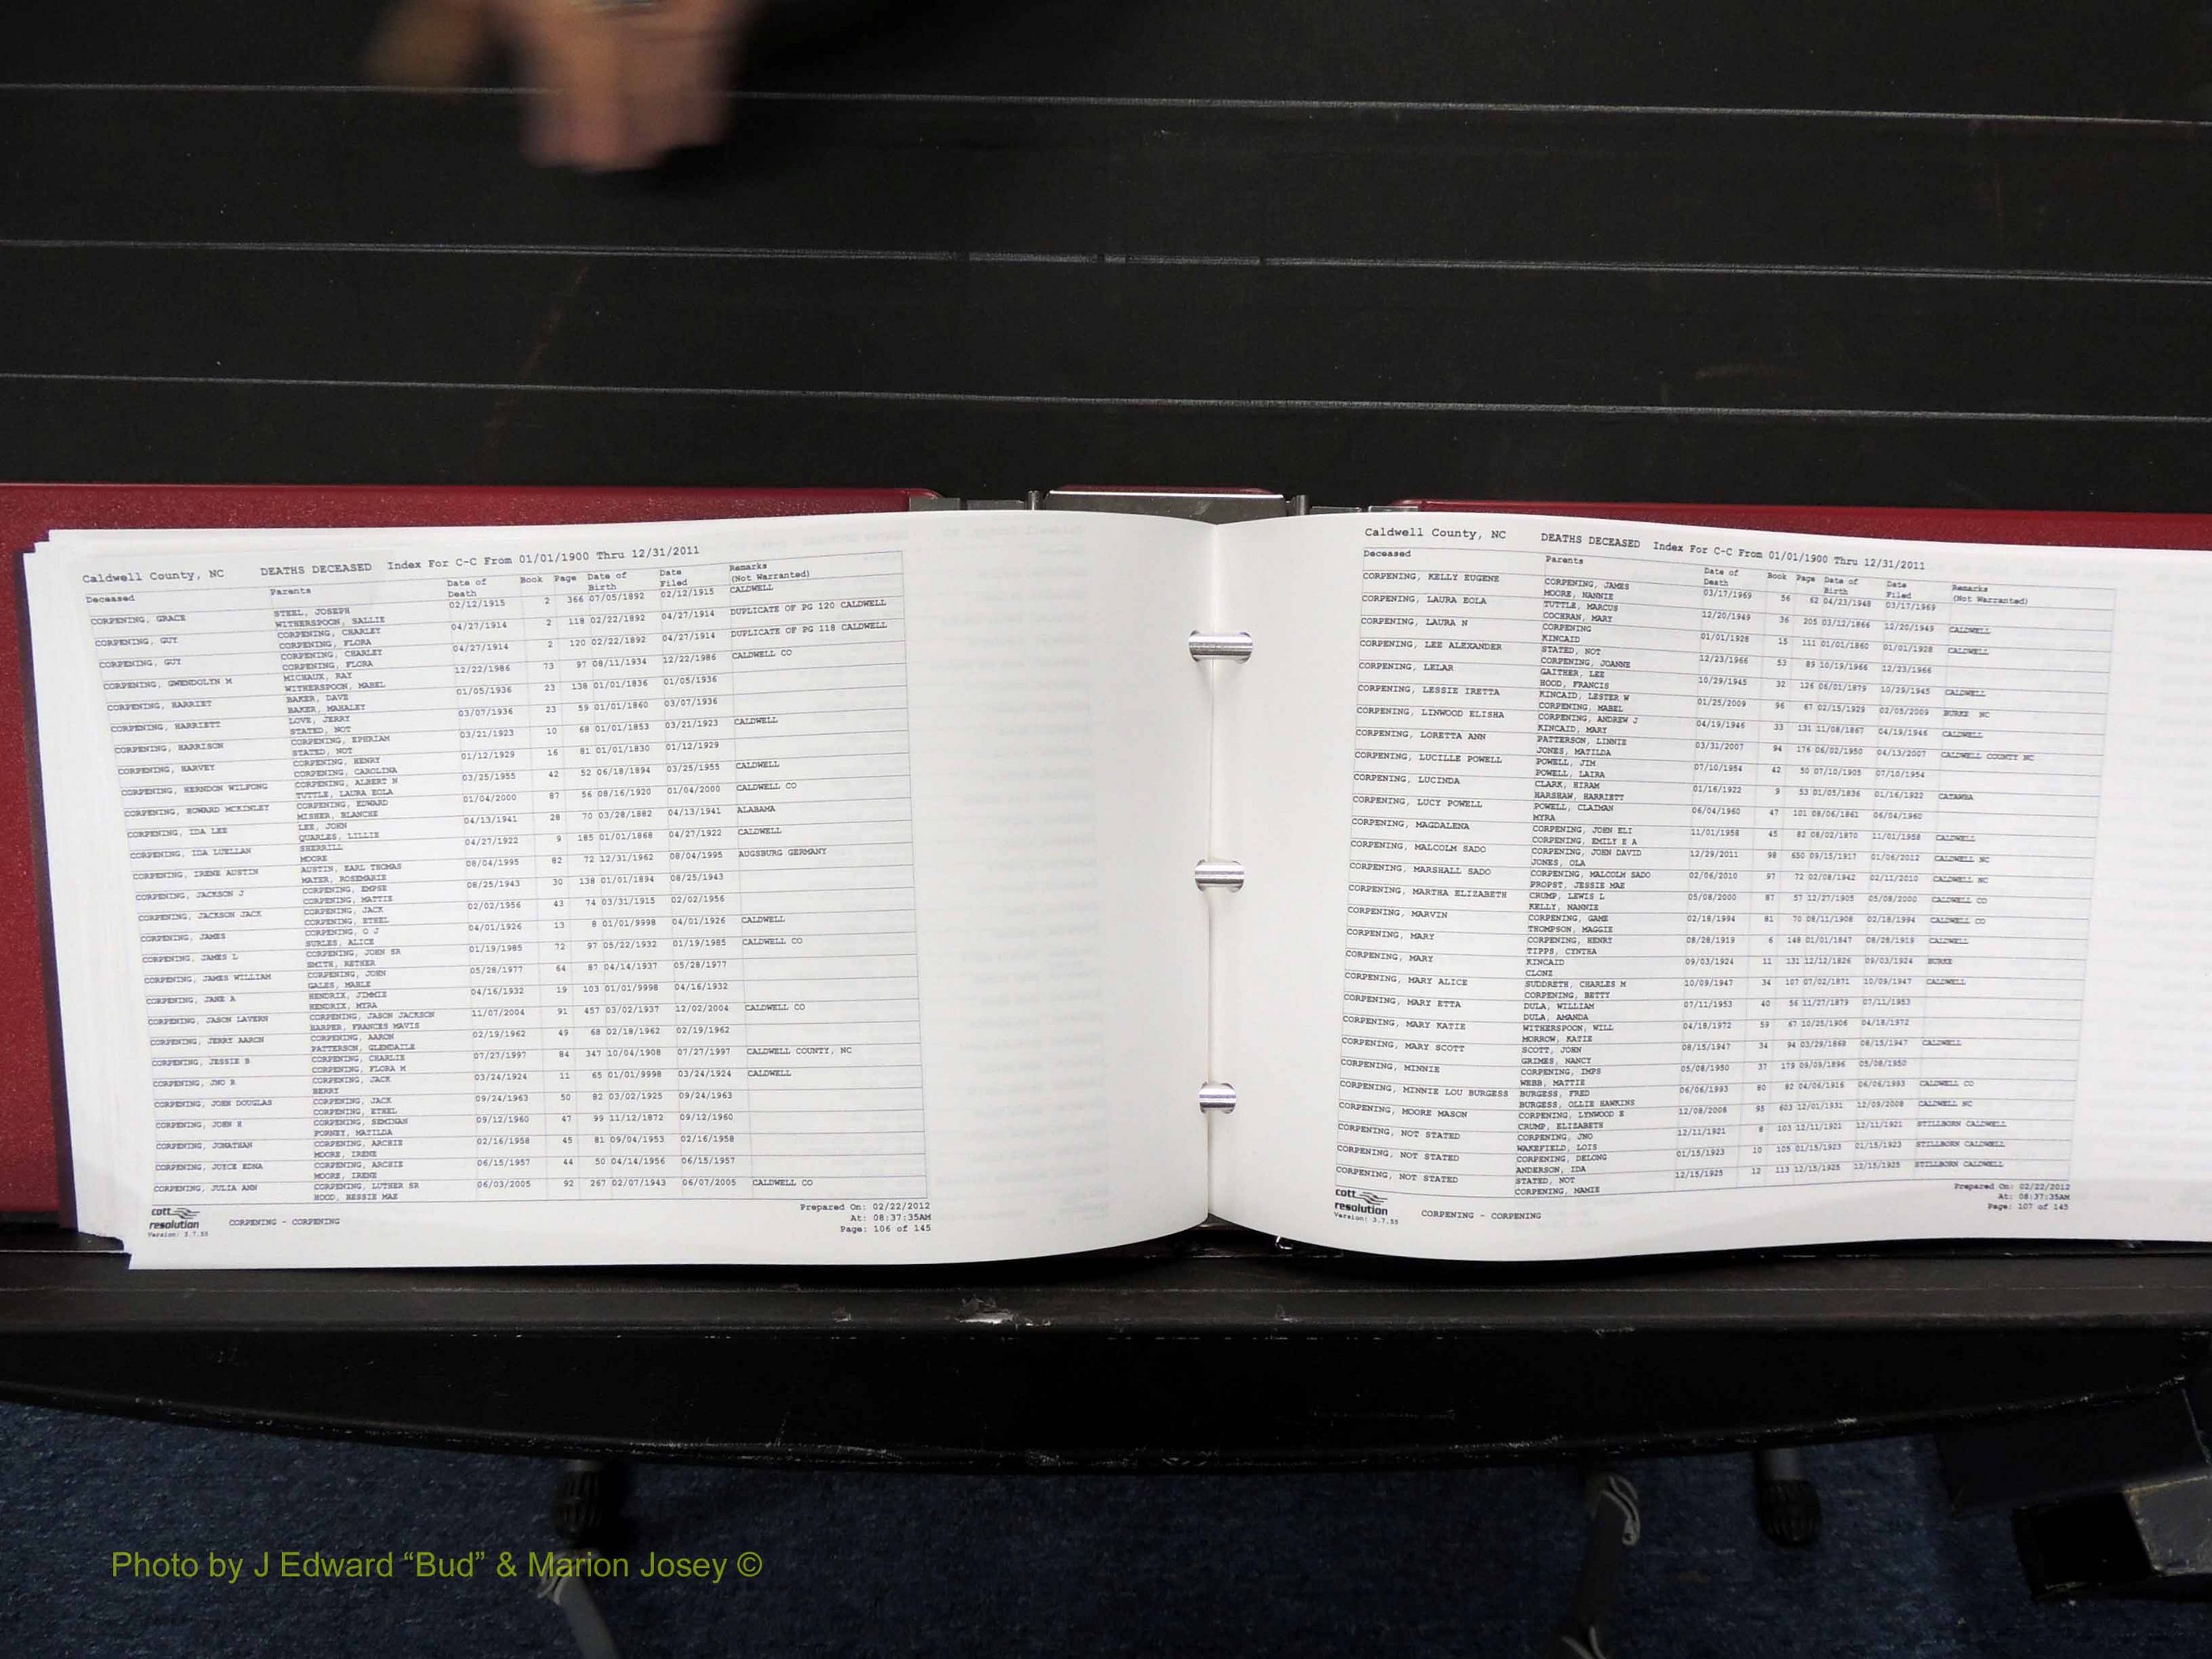 Caldwell County, NC DEATHS DECEASED Index For C-C From 01/01/1900 Thru 12/31/2011
Deceased Parents Date of Death Book Page Date of Birth Date Filed Remarks (Not Warranted)
CORPENING, GRACE STEEL, JOSEPH 02/12/1915 2 366 07/05/1892 02/12/1915 CALDWELL
WITHERSPOON, SALLIE
CORPENING, GUY CORPENING, CHARLEY 04/27/1914 2 118 02/22/1892 04/27/1914 DUPLICATE OF PG 120 CALDWELL
CORPENING, FLORA
CORPENING, GUY CORPENING, CHARLEY 04/27/1914 2 120 02/22/1892 04/27/1914 DUPLICATE OF PG 118 CALDWELL
CORPENING, FLORA
CORPENING, GWENDOLYN M MICHAUX, RAY 12/22/1986 73 97 08/11/1934 12/22/1986 CALDWELL CO
WITHERSPOON, MABEL
CORPENING, HARRIET BAKER, DAVE 01/05/1936 23 138 01/01/1836 01/05/1936
BAKER, MAHALEY
CORPENING, HARRIETT LOVE, JERRY 03/07/1936 23 59 01/01/1860 03/07/1936
STATED, NOT
CORPENING, HARRISON CORPENING, EPHRIAM 03/21/1923 10 68 01/01/1853 03/21/1923 CALDWELL
STATED, NOT
CORPENING, HARVEY CORPENING, HENRY 01/12/1929 16 81 01/01/1830 01/12/1929
CORPENING, CAROLINA
CORPENING, HERNDON WILFONG CORPENING, ALBERT N 03/25/1955 42 52 06/18/1894 03/25/1955 CALDWELL
TUTTLE, LAURA EOLA
CORPENING, HOWARD MCKINLEY CORPENING, EDWARD 01/04/2000 87 56 08/16/1920 01/04/2000 CALDWELL CO
MISHER, BLANCHE
CORPENING, IDA LEE LEE, JOHN 04/13/1941 28 70 03/28/1882 04/13/1941 ALABAMA
QUARLES, LILLIE
CORPENING, IDA LUELLAN SHERRILL 04/27/1922 9 185 01/01/1868 04/27/1922 CALDWELL
MOORE
CORPENING, IRENE AUSTIN AUSTIN, EARL THOMAS 08/04/1995 82 72 12/31/1962 08/04/1995 AUGSBURG GERMANY
MAYER, ROSEMARIE
CORPENING, JACKSON J CORPENING, EMPSE 08/25/1943 30 138 01/01/1894 08/25/1943
CORPENING, MATTIE
CORPENING, JACKSON JACK CORPENING, JACK 02/02/1956 43 74 03/31/1915 02/02/1956
CORPENING, ETHEL
CORPENING, JAMES CORPENING, O J 04/01/1926 13 8 01/01/9998 04/01/1926 CALDWELL
SURLES, ALICE
CORPENING, JAMES L CORPENING, JOHN SR 01/19/1985 72 97 05/22/1932 01/19/1985 CALDWELL CO
SMITH, RETHER
CORPENING, JAMES WILLIAM CORPENING, JOHN 05/28/1977 64 87 04/14/1937 05/28/1977
GALES, MABLE
CORPENING, JANE A HENDRIX, JIMMIE 04/16/1932 19 103 01/01/9998 04/16/1932
HENDRIX, MYRA
CORPENING, JASON LAVERN CORPENING, JASON JACKSON 11/07/2004 91 457 03/02/1937 12/02/2004 CALDWELL CO
HARPER, FRANCES MAVIS
CORPENING, JERRY AARON CORPENING, AARON 02/19/1962 49 68 02/18/1962 02/19/1962
PATTERSON, GLENDAILE
CORPENING, JESSIE B CORPENING, CHARLIE 07/27/1997 84 347 10/04/1908 07/27/1997 CALDWELL COUNTY, NC
CORPENING, FLORA M
CORPENING, JNO R CORPENING, JACK 03/24/1924 11 65 01/01/9998 03/24/1924 CALDWELL
BERRY
CORPENING, JOHN DOUGLAS CORPENING, JACK 09/24/1963 50 82 03/02/1925 09/24/1963
CORPENING, ETHEL
CORPENING, JOHN H CORPENING, SEMINAN 09/12/1960 47 99 11/12/1872 09/12/1960
FORNEY, MATILDA
CORPENING, JONATHAN CORPENING, ARCHIE 02/16/1958 45 81 09/04/1953 02/16/1958
MOORE, IRENE
CORPENING, JOYCE EDNA CORPENING, ARCHIE 06/15/1957 44 50 04/14/1956 06/15/1957
MOORE, IRENE
CORPENING, JULIA ANN CORPENING, LUTHER SR 06/03/2005 92 267 02/07/1943 06/07/2005 CALDWELL CO
HOOD, BESSIE MAE
cott resolution
Version: 3.7.55
CORPENING - CORPENING
Prepared On: 02/22/2012
At: 08:37:35AM
Page: 106 of 145
Caldwell County, NC DEATHS DECEASED Index For C-C From 01/01/1900 Thru 12/31/2011
Deceased Parents Date of Death Book Page Date of Birth Date Filed Remarks (Not Warranted)
CORPENING, KELLY EUGENE CORPENING, JAMES 03/17/1969 56 62 04/23/1948 03/17/1969
MOORE, NANNIE
CORPENING, LAURA EOLA TUTTLE, MARCUS 12/20/1949 36 205 03/12/1866 12/20/1949 CALDWELL
COCHRAN, MARY
CORPENING, LAURA N CORPENING 01/01/1928 15 111 01/01/1860 01/01/1928 CALDWELL
KINCAID
CORPENING, LEE ALEXANDER STATED, NOT 12/23/1966 53 89 10/19/1966 12/23/1966
CORPENING, JOANNE
CORPENING, LELAR GAITHER, LEE 10/29/1945 32 126 06/01/1879 10/29/1945 CALDWELL
HOOD, FRANCIS
CORPENING, LESSIE IRETTA KINCAID, LESTER W 01/25/2009 96 67 02/15/1929 02/05/2009 BURKE NC
CORPENING, MABEL
CORPENING, LINWOOD ELISHA CORPENING, ANDREW J 04/19/1946 33 131 11/08/1867 04/19/1946 CALDWELL
KINCAID, MARY
CORPENING, LORETTA ANN PATTERSON, LINNIE 03/31/2007 94 176 06/02/1950 04/13/2007 CALDWELL COUNTY NC
JONES, MATILDA
CORPENING, LUCILLE POWELL POWELL, JIM 07/10/1954 42 50 07/10/1905 07/10/1954
POWELL, LAIRA
CORPENING, LUCINDA CLARK, HIRAM 01/16/1922 9 53 01/05/1836 01/16/1922 CATAWBA
HARSHAW, HARRIETT
CORPENING, LUCY POWELL POWELL, CLAIMAN 06/04/1960 47 101 08/06/1861 06/04/1960
MYRA
CORPENING, MAGDALENA CORPENING, JOHN ELI 11/01/1958 45 82 08/02/1870 11/01/1958 CALDWELL
CORPENING, EMILY E A
CORPENING, MALCOLM SADO CORPENING, JOHN DAVID 12/29/2011 98 650 09/15/1917 01/06/2012 CALDWELL NC
JONES, OLA
CORPENING, MARSHALL SADO CORPENING, MALCOLM SADO 02/06/2010 97 72 02/08/1942 02/11/2010 CALDWELL NC
PROPST, JESSIE MAE
CORPENING, MARTHA ELIZABETH CRUMP, LEWIS L 05/08/2000 87 57 12/27/1905 05/08/2000 CALDWELL CO
KELLY, NANNIE
CORPENING, MARVIN CORPENING, GAME 02/18/1994 81 70 08/11/1908 02/18/1994 CALDWELL CO
THOMPSON, MAGGIE
CORPENING, MARY CORPENING, HENRY 08/28/1919 6 148 01/01/1847 08/28/1919 CALDWELL
TIPPS, CYNTHA
CORPENING, MARY KINCAID 09/03/1924 11 131 12/12/1826 09/03/1924 BURKE
CLONZ
CORPENING, MARY ALICE SUDDRETH, CHARLES M 10/09/1947 34 107 07/02/1871 10/09/1947 CALDWELL
CORPENING, BETTY
CORPENING, MARY ETTA DULA, WILLIAM 07/11/1953 40 56 11/27/1879 07/11/1953
DULA, AMANDA
CORPENING, MARY KATIE WITHERSPOON, WILL 04/18/1972 59 67 10/25/1906 04/18/1972
MORROW, KATIE
CORPENING, MARY SCOTT SCOTT, JOHN 08/15/1947 34 94 03/29/1868 08/15/1947 CALDWELL
GRIMES, NANCY
CORPENING, MINNIE CORPENING, IMPS 05/08/1950 37 179 09/09/1896 05/08/1950
WEBB, MATTIE
CORPENING, MINNIE LOU BURGESS BURGESS, FRED 06/06/1993 80 82 04/06/1916 06/06/1993 CALDWELL CO
BURGESS, OLLIE HAWKINS
CORPENING, MOORE MASON CORPENING, LYNWOOD E 12/08/2008 95 603 12/01/1931 12/09/2008 CALDWELL NC
CRUMP, ELIZABETH
CORPENING, NOT STATED CORPENING, JNO 12/11/1921 8 103 12/11/1921 12/11/1921 STILLBORN CALDWELL
WAKEFIELD, LOIS
CORPENING, NOT STATED CORPENING, DELONG 01/15/1923 10 105 01/15/1923 01/15/1923 STILLBORN CALDWELL
ANDERSON, IDA
CORPENING, NOT STATED STATED, NOT 12/15/1925 12 113 12/15/1925 12/15/1925 STILLBORN CALDWELL
CORPENING, MAMIE
cott resolution
Version: 3.7.55
CORPENING - CORPENING
Prepared On: 02/22/2012
At: 08:37:35AM
Page: 107 of 145
Photo by J Edward “Bud” & Marion Josey ©